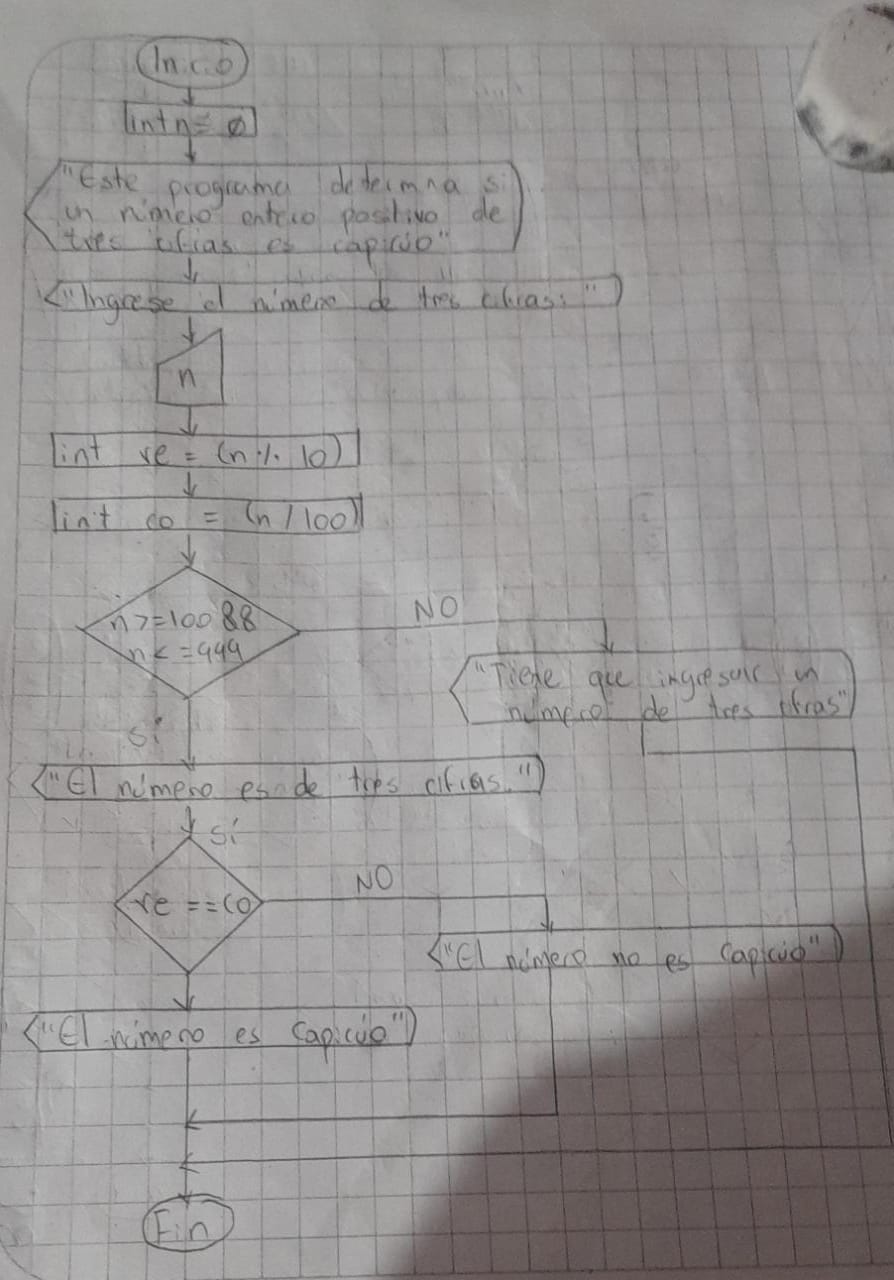 Inicio
int n = 0
"Este programa determina si
un número entero positivo de
tres cifras es capicúo"
"Ingrese el número de tres cifras: "
n
int re = (n % 10)
int co = (n / 100)
n >= 100 &&
n <= 999
NO
"Tiene que ingresar un
número de tres cifras"
Sí
"El número es de tres cifras."
Sí
re == co
NO
"El número no es capicúo"
"El número es capicúo"
Fin